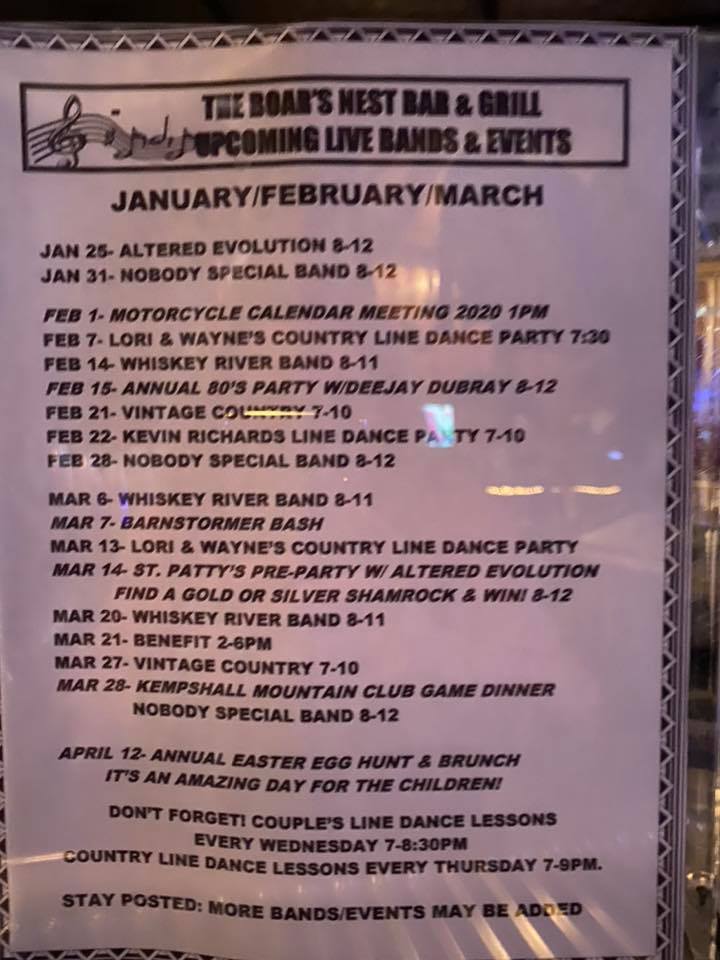 THE BOAR'S NEST BAR & GRILL
UPCOMING LIVE BANDS & EVENTS
JANUARY/FEBRUARY/MARCH
JAN 25- ALTERED EVOLUTION 8-12
JAN 31- NOBODY SPECIAL BAND 8-12
FEB 1- MOTORCYCLE CALENDAR MEETING 2020 1PM
FEB 7- LORI & WAYNE'S COUNTRY LINE DANCE PARTY 7:30
FEB 14- WHISKEY RIVER BAND 8-11
FEB 15- ANNUAL 80'S PARTY W/DEEJAY DUBRAY 8-12
FEB 21- VINTAGE COUNTRY 7-10
FEB 22- KEVIN RICHARDS LINE DANCE PARTY 7-10
FEB 28- NOBODY SPECIAL BAND 8-12
MAR 6- WHISKEY RIVER BAND 8-11
MAR 7- BARNSTORMER BASH
MAR 13- LORI & WAYNE'S COUNTRY LINE DANCE PARTY
MAR 14- ST. PATTY'S PRE-PARTY W/ ALTERED EVOLUTION
FIND A GOLD OR SILVER SHAMROCK & WIN! 8-12
MAR 20- WHISKEY RIVER BAND 8-11
MAR 21- BENEFIT 2-6PM
MAR 27- VINTAGE COUNTRY 7-10
MAR 28- KEMPSHALL MOUNTAIN CLUB GAME DINNER
NOBODY SPECIAL BAND 8-12
APRIL 12- ANNUAL EASTER EGG HUNT & BRUNCH
IT'S AN AMAZING DAY FOR THE CHILDREN!
DON'T FORGET! COUPLE'S LINE DANCE LESSONS
EVERY WEDNESDAY 7-8:30PM
COUNTRY LINE DANCE LESSONS EVERY THURSDAY 7-9PM.
STAY POSTED: MORE BANDS/EVENTS MAY BE ADDED